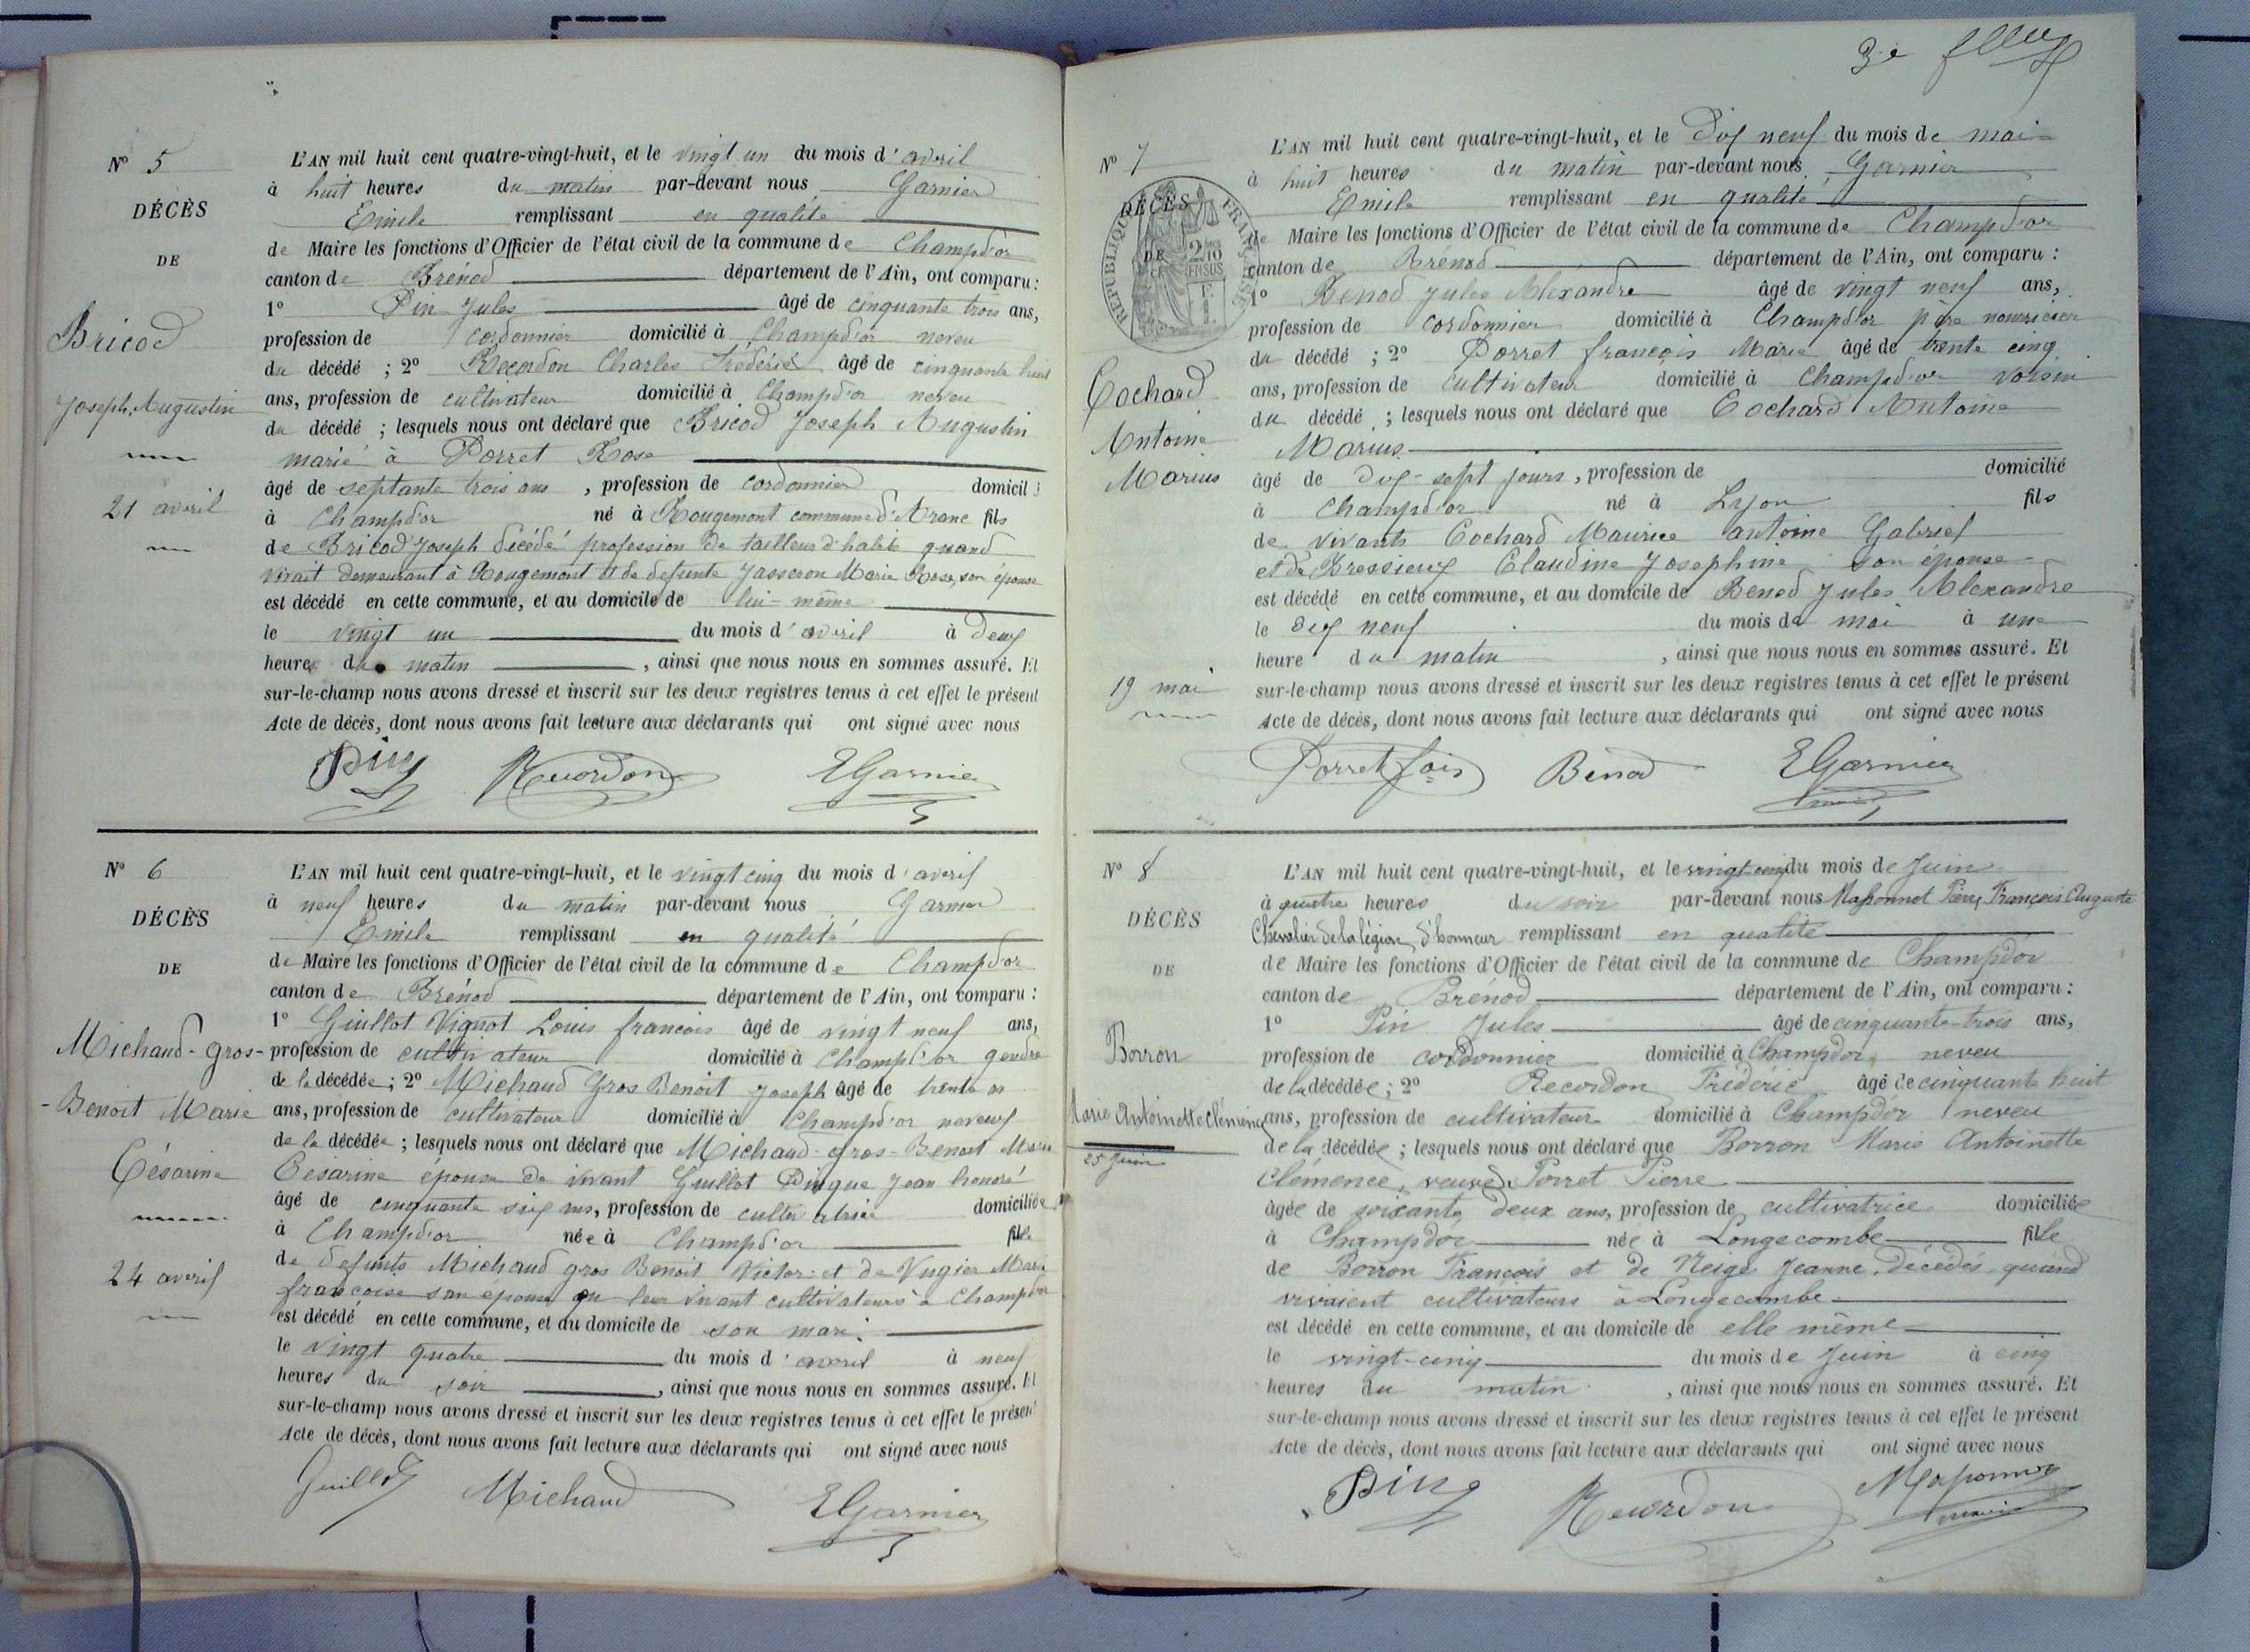 N° 5
DÉCÈS
DE
Bricod
Joseph Augustin
21 avril
L'AN mil huit cent quatre-vingt-huit, et le vingt un du mois d'avril
à huit heures du matin par-devant nous Garnier
Emile remplissant en qualité
de Maire les fonctions d'Officier de l'état civil de la commune de Champd'or
canton de Brénod département de l'Ain, ont comparu :
1° Pin Jules âgé de cinquante trois ans,
profession de cordonnier domicilié à Champd'or neveu
du décédé ; 2° Recordon Charles Frédéric âgé de cinquante huit
ans, profession de cultivateur domicilié à Champd'or neveu
du décédé ; lesquels nous ont déclaré que Bricod Joseph Augustin
marié à Porret Rose
âgé de septante trois ans , profession de cordonnier domicilié
à Champd'or né à Rougemont commune d'Aranc fils
de Bricod Joseph décédé profession de tailleur d'habits quand
vivait demeurant à Rougemont et de defunte Jasseron Marie Rose, son épouse
est décédé en cette commune, et au domicile de lui-même
le vingt un du mois d'avril à deux
heures du matin , ainsi que nous nous en sommes assuré. Et
sur-le-champ nous avons dressé et inscrit sur les deux registres tenus à cet effet le présent
Acte de décès, dont nous avons fait lecture aux déclarants qui ont signé avec nous
Pin Recordon EGarnier
N° 6
DÉCÈS
DE
Michaud-gros-
-Benoit Marie
Césarine
24 avril
L'AN mil huit cent quatre-vingt-huit, et le vingt cinq du mois d'avril
à neuf heures du matin par-devant nous Garnier
Emile remplissant en qualité
de Maire les fonctions d'Officier de l'état civil de la commune de Champd'or
canton de Brénod département de l'Ain, ont comparu :
1° Guillot Vignot Louis françois âgé de vingt neuf ans,
profession de cultivateur domicilié à Champd'or gendre
de la décédée ; 2° Michaud Gros Benoit Joseph âgé de trente
ans, profession de cultivateur domicilié à Champd'or neveux
de la décédée ; lesquels nous ont déclaré que Michaud-gros-Benoit Marie
Césarine epouse de vivant Guillot Jean honoré
âgé de cinquante six ans, profession de cultivatrice domiciliée
à Champd'or née à Champd'or fille
de defunts Michaud gros Benoit Victor et de Vugier Marie
françoise son épouse leur vivant cultivateurs à Champdor
est décédé en cette commune, et au domicile de son mari
le vingt quatre du mois d'avril à neuf
heures du soir , ainsi que nous nous en sommes assuré. Et
sur-le-champ nous avons dressé et inscrit sur les deux registres tenus à cet effet le présent
Acte de décès, dont nous avons fait lecture aux déclarants qui ont signé avec nous
Guillot Michaud EGarnier
3e
N° 7
DÉCÈS
DE
RÉPUBLIQUE FRANÇAISE
2/10 EN SUS
Cochard
Antoine
Marius
19 mai
L'AN mil huit cent quatre-vingt-huit, et le dix neuf du mois de mai
à huit heures du matin par-devant nous Garnier
Emile remplissant en qualité
de Maire les fonctions d'Officier de l'état civil de la commune de Champd'or
canton de Brénod département de l'Ain, ont comparu :
1° Benod Jules Alexandre âgé de vingt neuf ans,
profession de cordonnier domicilié à Champd'or père nourricier
du décédé ; 2° Porret françois Marie âgé de trente cinq
ans, profession de cultivateur domicilié à Champd'or voisin
du décédé ; lesquels nous ont déclaré que Cochard Antoine
Marius
âgé de dix-sept jours, profession de domicilié
à Champd'or né à Lyon fils
de vivants Cochard Maurice antoine Gabriel
et de Bressieux Claudine Josephine son épouse
est décédé en cette commune, et au domicile de Benod Jules Alexandre
le dix neuf du mois de mai à une
heure du matin , ainsi que nous nous en sommes assuré. Et
sur-le-champ nous avons dressé et inscrit sur les deux registres tenus à cet effet le présent
Acte de décès, dont nous avons fait lecture aux déclarants qui ont signé avec nous
Porret fois Benod EGarnier
N° 8
DÉCÈS
DE
Borron
Marie Antoinette Clémence
25 Juin
L'AN mil huit cent quatre-vingt-huit, et le vingt cinq du mois de Juin
à quatre heures du soir par-devant nous Maponnot Pierre François Auguste
Chevalier de la légion d'honneur remplissant en qualité
de Maire les fonctions d'Officier de l'état civil de la commune de Champdor
canton de Brénod département de l'Ain, ont comparu :
1° Pin Jules âgé de cinquante-trois ans,
profession de cordonnier domicilié à Champdor neveu
de la décédée ; 2° Recordon Frédéric âgé de cinquante huit
ans, profession de cultivateur domicilié à Champdor neveu
de la décédée ; lesquels nous ont déclaré que Borron Marie Antoinette
Clémence, veuve Porret Pierre
âgée de soixante deux ans, profession de cultivatrice domiciliée
à Champdor née à Longecombe fille
de Borron François et de Neige Jeanne décédés quand
vivaient cultivateurs à Longecombe
est décédé en cette commune, et au domicile de elle même
le vingt-cinq du mois de Juin à cinq
heures du matin , ainsi que nous nous en sommes assuré. Et
sur-le-champ nous avons dressé et inscrit sur les deux registres tenus à cet effet le présent
Acte de décès, dont nous avons fait lecture aux déclarants qui ont signé avec nous
Pin Recordon Maponnot